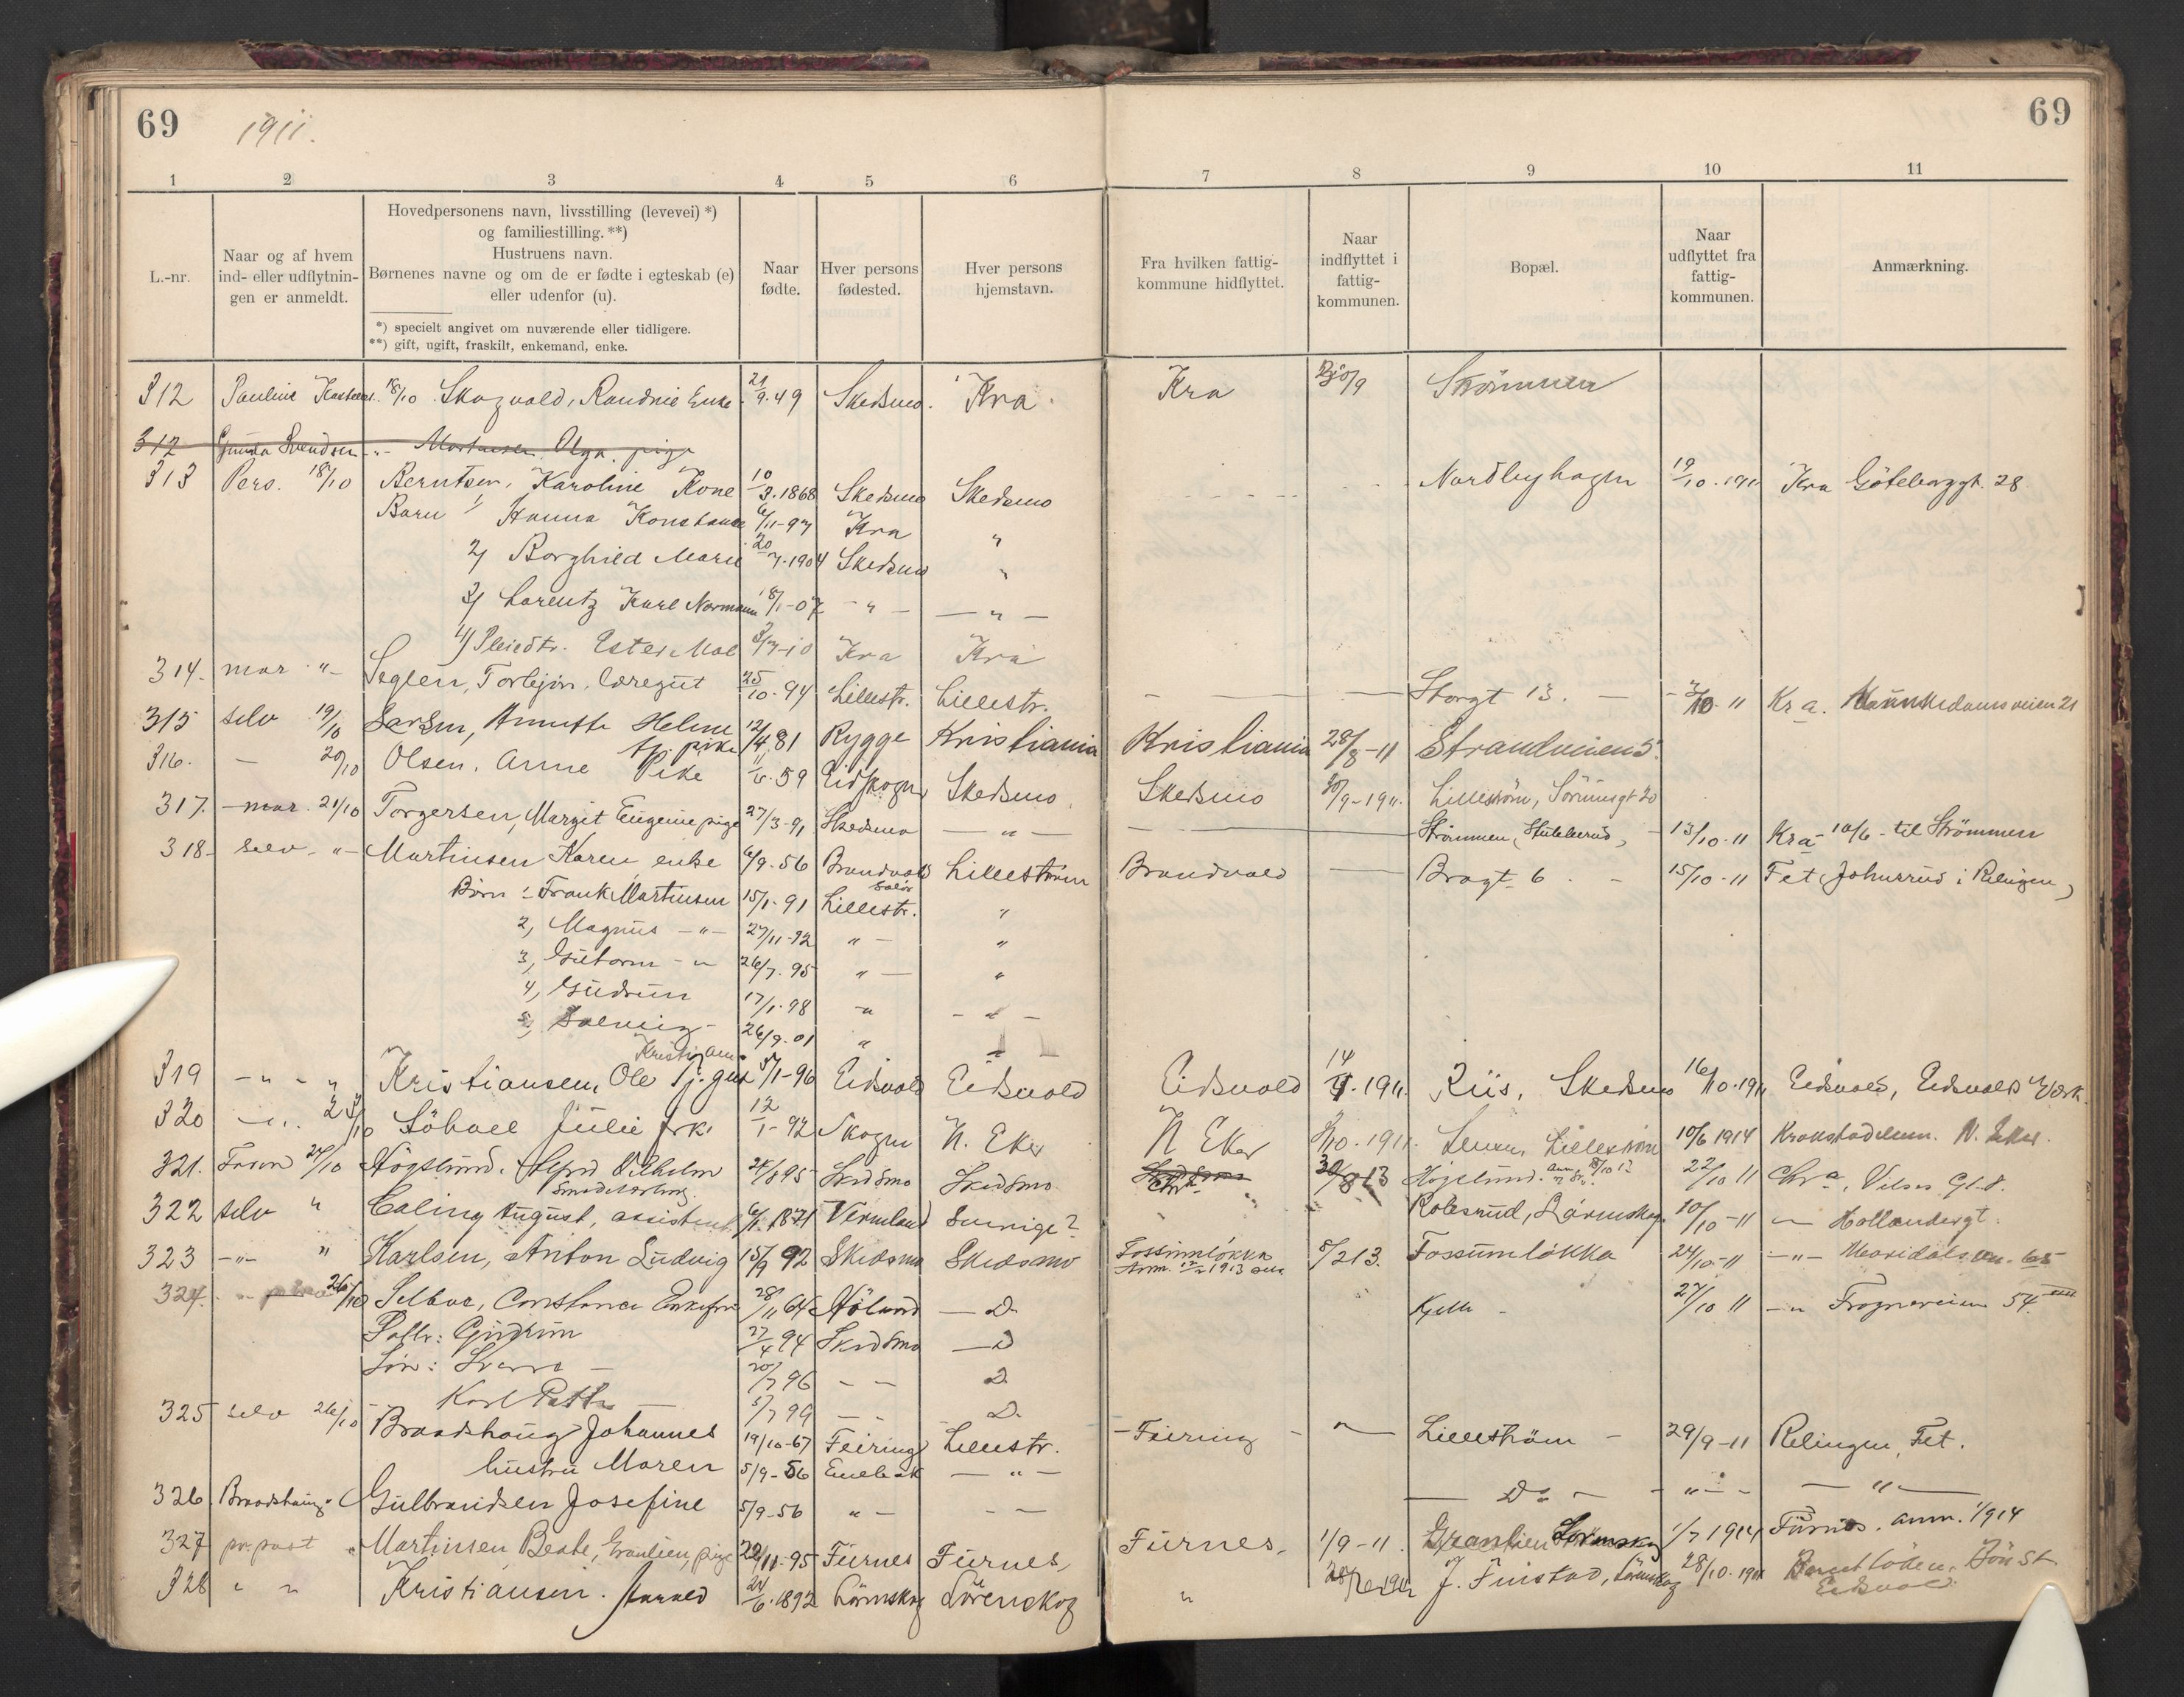 69 1911. 69
1 2 3 4 5 6 7 8 9 10 11
L.-nr.
Naar og af hvem
ind- eller udflytnin-
gen er anmeldt.
Hovedpersonens navn, livsstilling (levevei) *)
og familiestilling. **)
Hustruens navn.
Børnenes navne og om de er fødte i egteskab (e)
eller udenfor (u).
*) specielt angivet om nuværende eller tidligere.
**) gift, ugift, fraskilt, enkemand, enke.
Naar
fødte.
Hver persons
fødested.
Hver persons
hjemstavn.
Fra hvilken fattig-
kommune hidflyttet.
Naar
indflyttet i
fattig-
kommunen.
Bopæl.
Naar
udflyttet fra
fattig-
kommunen.
Anmærkning.
312 Pauline 18/10 Skogvold, Randnie Enke 21/9.49 Skedsmo. Kra. Kra Strömmen
312 Gunda Svendsen -"- Mortensen Olga. pige
313 Pers. 18/10 Berntsen, Karoline Kone 10/3.1868 Skedsmo Skedsmo Nordbyhagen 19/10.1911 Kra Göteborggt. 28
Barn 1/ Hanna Konstance 6/11-97 Kra "
2/ Borghild Marie 20/7.1904 Skedsmo "
3/ Lorentz Karl Normann 18/1-07 - " - - " -
4/ Pleiedtr. Ester Mae 3/7-10 Kra Kra
314. mor -"- Seglen, Torbjörn, læregut 25/10.94 Lillestr. Lillestr. Storgt 13. 3/10.11 Kra. Munkedamsveien 21
315 selv 19/10 Larsen, Annette Helene 12/4.81 Rygge Kristiania Kristiania 28/8-11 Strandveien 5.
tj. pike
316. - 20/10 Olsen. Anne Pike 11/6.59 Eidskogen Skedsmo. Skedsmo 30/9-1911. Lilleström, Sörumsgt 20
317. - mor. 21/10 Torgersen, Margit Eugenie pige 27/3-91 Skedsmo - " - Strömmen, 13/10-11 Kra - 10/6 - til Strömmen
318- selv - " - Martinsen Karen, enke 6/9.56 Brandvold Lilleström Brandvold Brogt. 6 15/10-11 Fet (Johnsrud i Relingen)
Solör
Börn: Frank Martinsen 15/1-91 Lillestr. "
2, Magnus - " - 27/11-92 " - "
3, Guttorm - " 26/7.95 " - "
4, Gudrun 17/1.98 - " - " -
5, Solveig - 26/9.01 "
Kristiania
319 - " - " Kristiansen, Ole Tj. gut 5/1-96 Eidsvold Eidsvold Eidsvold 14/9.1911. Riis, Skedsmo 16/10.1911 Eidsvold, Eidsvolds Værk
320 - " - 23/10 Söhoel Julie frk. 12/1-92 Skogen N. Eker N Eker 3/10.1911. Lilleström 10/6 1914 Krokstadelven. N. Eker.
321. 24/10 Högslund, Vilhelm 24/8 95 Skedsmo Skedsmo Chra 30/8 13 Höjslund. 22/10 11 Chra, Vilses Gt. 8.
322 selv " Caling August, assistent 6/1.1871 Vermland Sverige? " " Robsrud, Lörenskog 10/10-11 - " - Hollandergt.
323 - " - " Karlsen, Anton Ludvig 15/9 92 Skedsmo Skedsmo Fossumlökka 5/2 13. Fossumlökka 24/10-11 - " - Maridalsvn. 65
324. 26/10 Selboe, Constance Enkefru 28/11 64 Höland - D. Kjelle - 27/10 11 - " Frognerveien 54.
Dattr: Gudrun 27/4 94 Skedsmo - D
Sön: Sverre - 20/7 96 - - D.
Karl Petter 5/7 99 - - D.
325 selv 26/10 Brandshaug Johannes 19/10-67 Feiring Lillestr. - Feiring - " Lilleström - 29/9-11 Relingen, Fet.
hustru Maren 5/9-56 Enebak - " - - Do - - " - - " -
326 Brandshaug Gulbrandsen Josefine 5/9-56 " - - -
327 pr. post " Martinsen Beate, Granlien, pige 22/11-95 Furnes Furnes, Furnes. 1/9-11. Granlien Lörenskog 1/7 1914 Furnes. anm. 1/9 14
328 " " Kristiansen. Harald 24/6.1892 Lörenskog Lörenskog " J. Finstad, Lörenskog 28/10.1911
Eidsvold